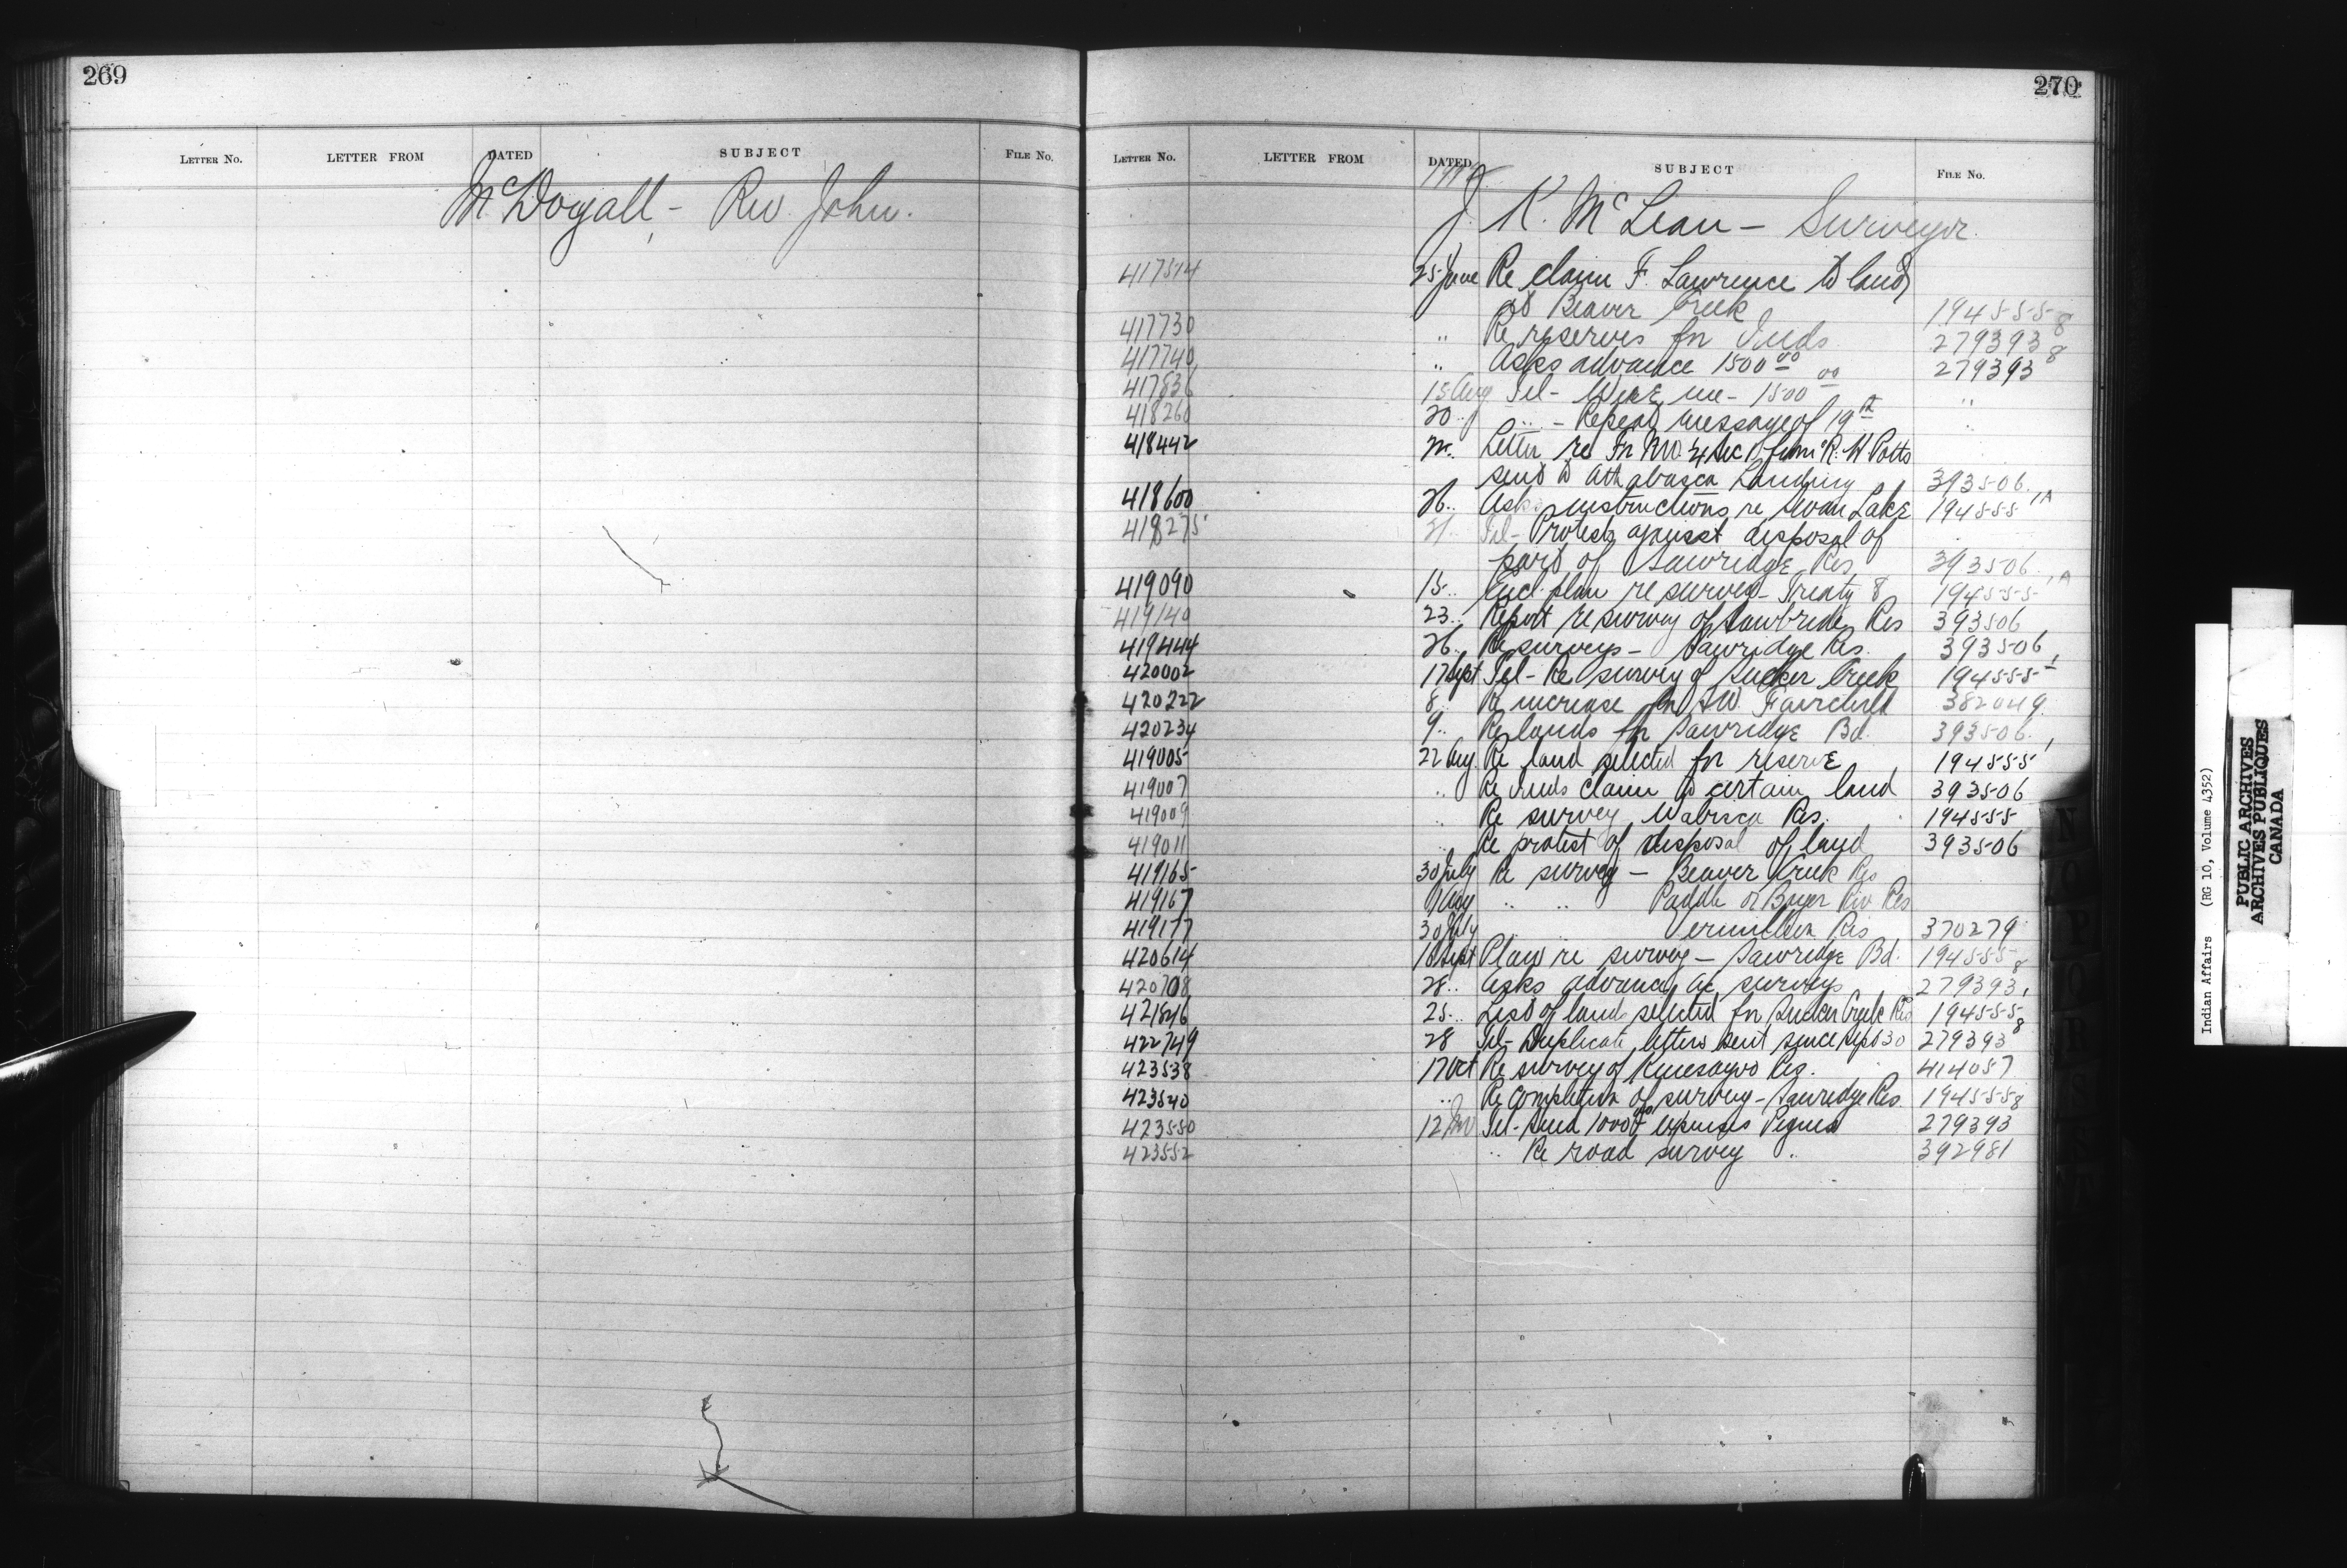 269
LETTER No. LETTER FROM DATED SUBJECT FILE No.
McDogall - Rev. John.
270
LETTER No. LETTER FROM DATED SUBJECT FILE No.
J. K. McLean - Surveyor.
417514 25 June Re claim F. Lawrence to land
at Beaver Creek 194555-8
417730 " Re reserves for Inds. 279393 8
417740 " Asks advance 1500 00 279393 8
417836 15 Aug Tel - Wire me - 1500 00 "
418260 20 " " - Repeat message of 19th "
418442 Letter re Fr NW 1/4 Sec 1 from R. H Potts
send to Athabasca Landing 393506.
418600 26 " Asks instructions re Swan Lake 194555 1A
418275 21 " Tel - Protests against disposal of
part of Sawridge Res 393506
419090 15 " Encl. plan re survey - Treaty 8 194555 1A
419140 23 " Report re survey of Sawbridge Res 393506
419444 26 " Re surveys - Sawridge Res. 393506
420002 17 Sept Tel - Re survey of Sucker Creek 194555 1
420222 8 " Re increase for A.W. Fairchild 382049
420234 9 " Re lands for Sawridge Bd. 393506
419005 22 Aug. Re land selected for reserve 194555 1
419007 " Re Inds claim to certain land 393506
419009 " Re survey Wabisca Res. 194555
419011 " Re protest of disposal of land 393506
419165 30 July Re survey - Beaver Creek Res
419167 9 Aug " " Paddle or Boyer Riv Res
419177 30 July " ermillion Res 370279
420614 18 Sept Plan re survey - Sawridge Bd. 194555-8
420708 28 " Asks advance a/c surveys 279393
421846 25 " List of land selected for Sucker Creek Res 194555-8
422749 28 Tel - Duplicate letters sent since Sept 30 279393 8
423538 17 Oct Re survey of Kinesayoo Res. 414057
423540 " Re completion of survey - Sawridge Res. 194555-8
423550 12 Nov Tel - Send 1000 00 expenses Peguis 279393
423552 " Re road survey " 392981
N
O
P
Q
R
S
Indian Affairs (RG 10, Volume 4352)
PUBLIC ARCHIVES
ARCHIVES PUBLIQUES
CANADA